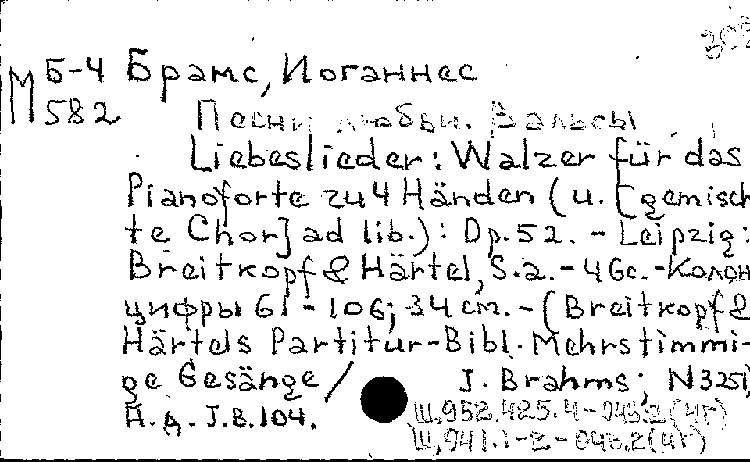 Б-4 Брамс, Иоганнес
М 582
Песни любви. Вальсы
Liebeslieder: Walzer für das
Pianoforte zu 4 Händen (u. [gemisch
te Chor] ad lib.): Op. 52. - Leipzig:
Breitkopf & Härtel, S.a. - 46c. - Колон
цифры 61-106; 34 cm. - (Breitkopf &
Härtels Partitur-Bibl. Mehrstimmi-
ge Gesänge / J. Brahms; N 3251)
Н.д. J.B.104.
Ш.952.425.4-043.2(4Г)
Ш.941.1-2-043.2(4Г)